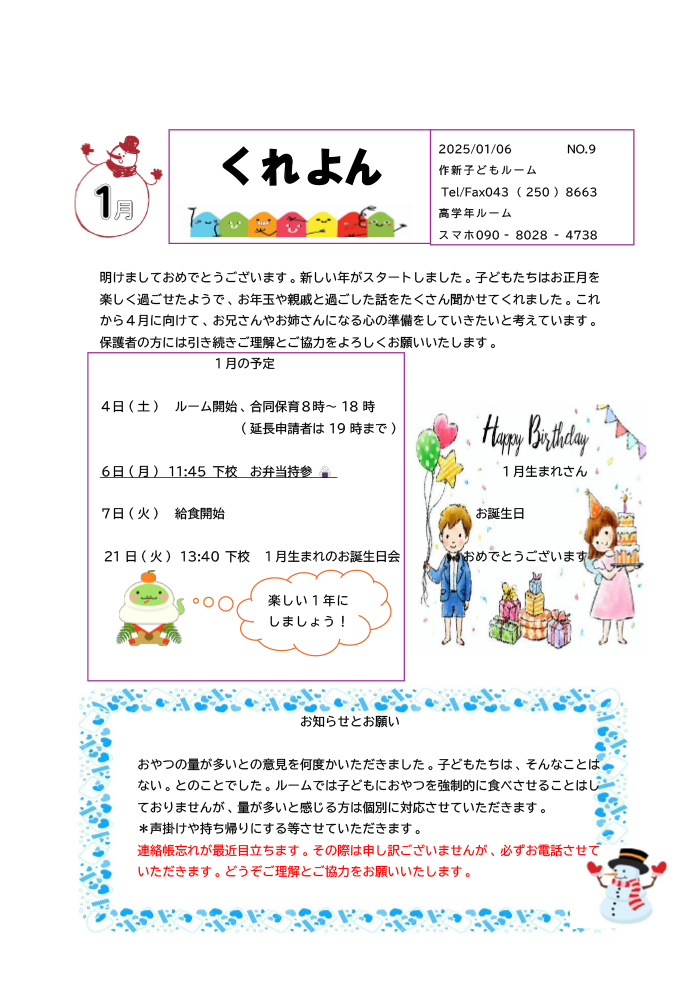 1月
くれよん
2025/01/06 NO.9
作新子どもルーム
Tel/Fax043（250）8663
高学年ルーム
スマホ090‐8028‐4738
明けましておめでとうございます。新しい年がスタートしました。子どもたちはお正月を
楽しく過ごせたようで、お年玉や親戚と過ごした話をたくさん聞かせてくれました。これ
から４月に向けて、お兄さんやお姉さんになる心の準備をしていきたいと考えています。
保護者の方には引き続きご理解とご協力をよろしくお願いいたします。
１月の予定
４日(土) ルーム開始、合同保育８時～18時
（延長申請者は19時まで）
６日(月) 11:45 下校 お弁当持参
７日(火) 給食開始
21日(火) 13:40 下校 １月生まれのお誕生日会
楽しい１年に
しましょう！
Happy Birthday
１月生まれさん
お誕生日
おめでとうございます
お知らせとお願い
おやつの量が多いとの意見を何度かいただきました。子どもたちは、そんなことは
ない。とのことでした。ルームでは子どもにおやつを強制的に食べさせることはし
ておりませんが、量が多いと感じる方は個別に対応させていただきます。
＊声掛けや持ち帰りにする等させていただきます。
連絡帳忘れが最近目立ちます。その際は申し訳ございませんが、必ずお電話させて
いただきます。どうぞご理解とご協力をお願いいたします。